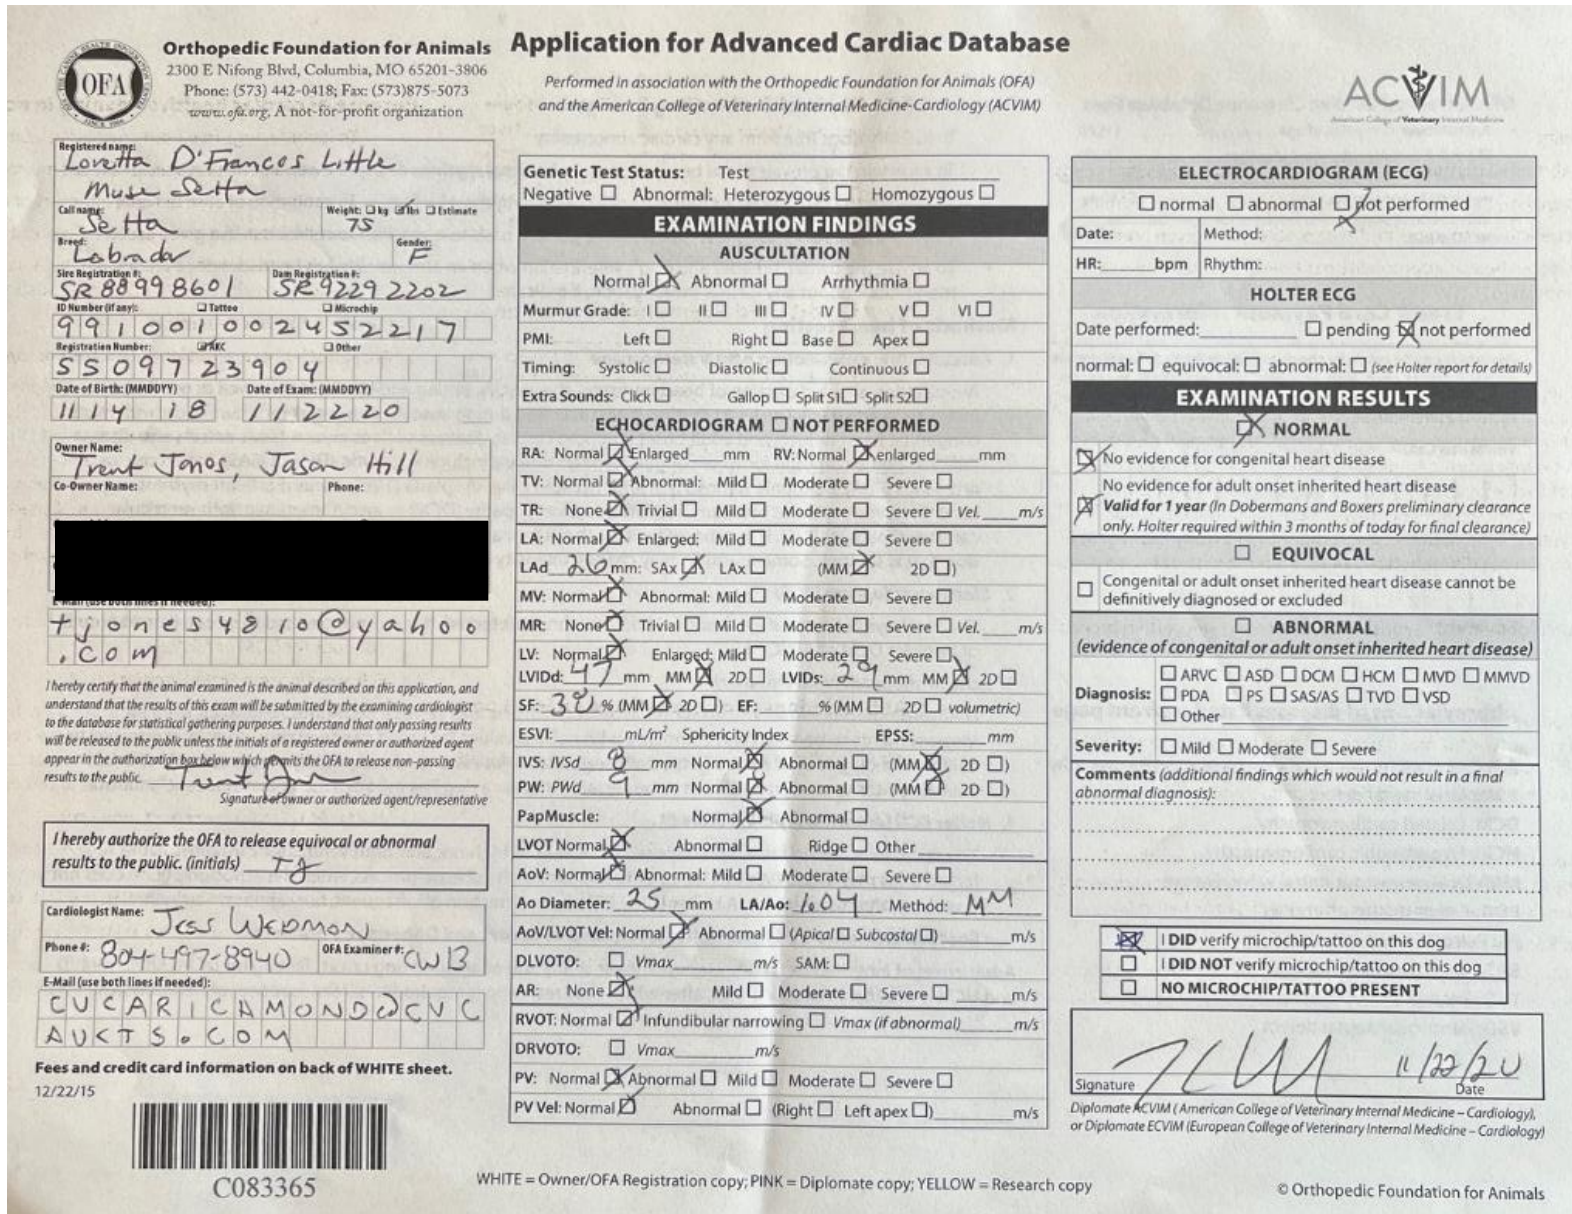 Orthopedic Foundation for Animals
2300 E Nifong Blvd, Columbia, MO 65201-3806
Phone: (573) 442-0418; Fax: (573)875-5073
www.ofa.org, A not-for-profit organization
OFA
Application for Advanced Cardiac Database
Performed in association with the Orthopedic Foundation for Animals (OFA)
and the American College of Veterinary Internal Medicine-Cardiology (ACVIM)
ACVIM
American College of Veterinary Internal Medicine
Registered name:
Loretta D'Francos Little
Muse Setta
Call name: Weight: kg lbs Estimate
Setta 75
Breed: Gender:
Labrador F
Sire Registration #: Dam Registration #:
SR88998601 SR92292202
ID Number (if any): Tattoo Microchip
991001002452217
Registration Number: AKC Other
SS09723904
Date of Birth: (MMDDYY) Date of Exam: (MMDDYY)
111418 112220
Owner Name:
Trent Jones, Jason Hill
Co-Owner Name: Phone:
E-Mail (use both lines if needed):
tjones4810@yahoo
.com
I hereby certify that the animal examined is the animal described on this application, and
understand that the results of this exam will be submitted by the examining cardiologist
to the database for statistical gathering purposes. I understand that only passing results
will be released to the public unless the initials of a registered owner or authorized agent
appear in the authorization box below which permits the OFA to release non-passing
results to the public.
Signature of owner or authorized agent/representative
I hereby authorize the OFA to release equivocal or abnormal
results to the public. (initials) TJ
Cardiologist Name: Jess Wedmon
Phone #: 804-497-8940 OFA Examiner #: CW13
E-Mail (use both lines if needed):
CVCARICAMOND@CVC
AVKTS.COM
Fees and credit card information on back of WHITE sheet.
12/22/15
C083365
Genetic Test Status: Test
Negative Abnormal: Heterozygous Homozygous
EXAMINATION FINDINGS
AUSCULTATION
Normal Abnormal Arrhythmia
Murmur Grade: I II III IV V VI
PMI: Left Right Base Apex
Timing: Systolic Diastolic Continuous
Extra Sounds: Click Gallop Split S1 Split S2
ECHOCARDIOGRAM NOT PERFORMED
RA: Normal Enlarged mm RV: Normal enlarged mm
TV: Normal Abnormal: Mild Moderate Severe
TR: None Trivial Mild Moderate Severe Vel. m/s
LA: Normal Enlarged: Mild Moderate Severe
LAd 26 mm: SAx LAx (MM 2D)
MV: Normal Abnormal: Mild Moderate Severe
MR: None Trivial Mild Moderate Severe Vel. m/s
LV: Normal Enlarged: Mild Moderate Severe
LVIDd: 47 mm MM 2D LVIDs: 29 mm MM 2D
SF: 38 % (MM 2D) EF: % (MM 2D volumetric)
ESVI: mL/m² Sphericity Index EPSS: mm
IVS: IVSd 8 mm Normal Abnormal (MM 2D)
PW: PWd 9 mm Normal Abnormal (MM 2D)
PapMuscle: Normal Abnormal
LVOT Normal Abnormal Ridge Other
AoV: Normal Abnormal: Mild Moderate Severe
Ao Diameter: 25 mm LA/Ao: 1.04 Method: MM
AoV/LVOT Vel: Normal Abnormal (Apical Subcostal) m/s
DLVOTO: Vmax m/s SAM:
AR: None Mild Moderate Severe m/s
RVOT: Normal Infundibular narrowing Vmax (if abnormal) m/s
DRVOTO: Vmax m/s
PV: Normal Abnormal Mild Moderate Severe
PV Vel: Normal Abnormal (Right Left apex) m/s
ELECTROCARDIOGRAM (ECG)
normal abnormal not performed
Date: Method:
HR: bpm Rhythm:
HOLTER ECG
Date performed: pending not performed
normal: equivocal: abnormal: (see Holter report for details)
EXAMINATION RESULTS
NORMAL
No evidence for congenital heart disease
No evidence for adult onset inherited heart disease
Valid for 1 year (In Dobermans and Boxers preliminary clearance
only. Holter required within 3 months of today for final clearance)
EQUIVOCAL
Congenital or adult onset inherited heart disease cannot be
definitively diagnosed or excluded
ABNORMAL
(evidence of congenital or adult onset inherited heart disease)
Diagnosis: ARVC ASD DCM HCM MVD MMVD
PDA PS SAS/AS TVD VSD
Other
Severity: Mild Moderate Severe
Comments (additional findings which would not result in a final
abnormal diagnosis):
I DID verify microchip/tattoo on this dog
I DID NOT verify microchip/tattoo on this dog
NO MICROCHIP/TATTOO PRESENT
11/22/20
Signature Date
Diplomate ACVIM (American College of Veterinary Internal Medicine – Cardiology),
or Diplomate ECVIM (European College of Veterinary Internal Medicine – Cardiology)
WHITE = Owner/OFA Registration copy; PINK = Diplomate copy; YELLOW = Research copy
© Orthopedic Foundation for Animals